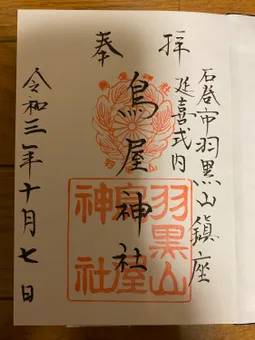 奉拝
石巻市羽黒山鎮座
延喜式内
鳥屋神社
令和三年十月七日
羽黒山
鳥屋
神社